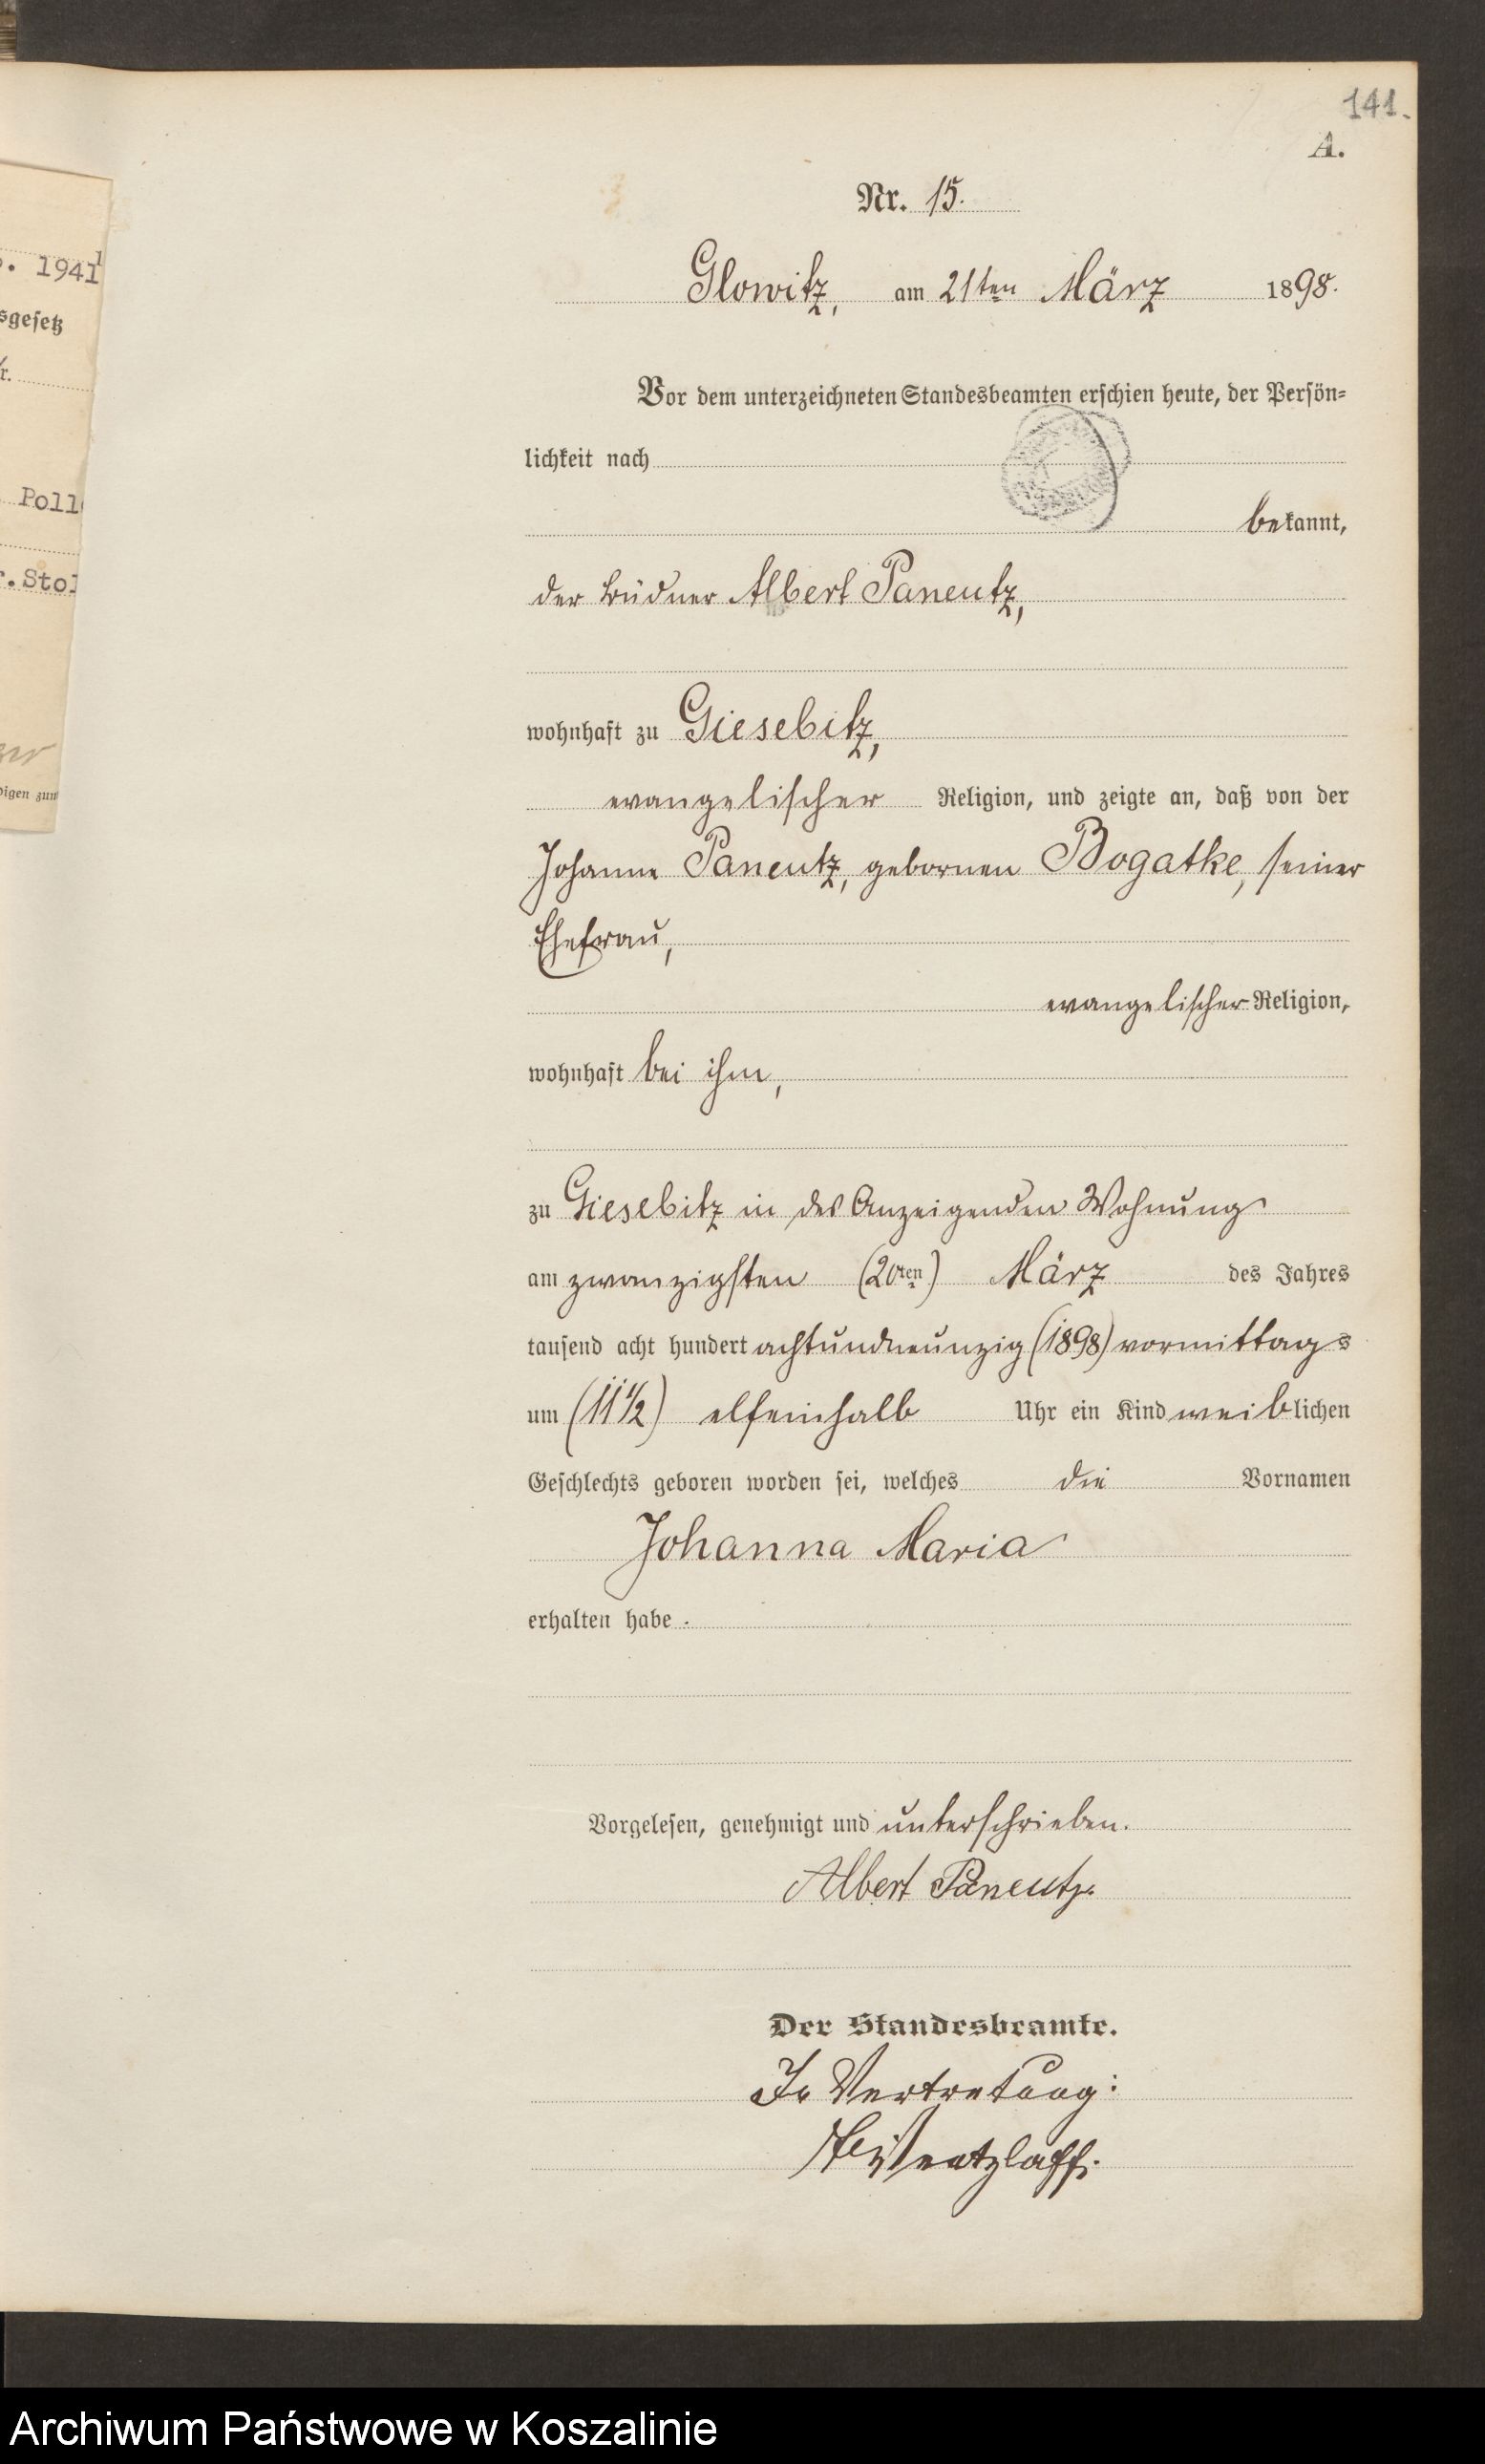 141.
A.
Nr. 15.
Glowitz, am 21ten März 1898.
Vor dem unterzeichneten Standesbeamten erschien heute, der Persön-
lichkeit nach
bekannt,
der Büdner Albert Paneutz,
wohnhaft zu Giesebitz,
evangelischer Religion, und zeigte an, daß von der
Johanne Paneutz, gebornen Bogatke, seiner
Ehefrau,
evangelischer Religion,
wohnhaft bei ihm,
zu Giesebitz in des Anzeigenden Wohnung
am zwanzigsten (20ten) März des Jahres
tausend acht hundert achtundneunzig (1898) vormittags
um (11 1/2) elfeinhalb Uhr ein Kind weiblichen
Geschlechts geboren worden sei, welches die Vornamen
Johanna Maria
erhalten habe.
Vorgelesen, genehmigt und unterschrieben.
Albert Paneutz.
Der Standesbeamte.
In Vertretung:
. 1941
sgesetz
r.
Poll
r. Stol
digen zum
Archiwum Państwowe w Koszalinie